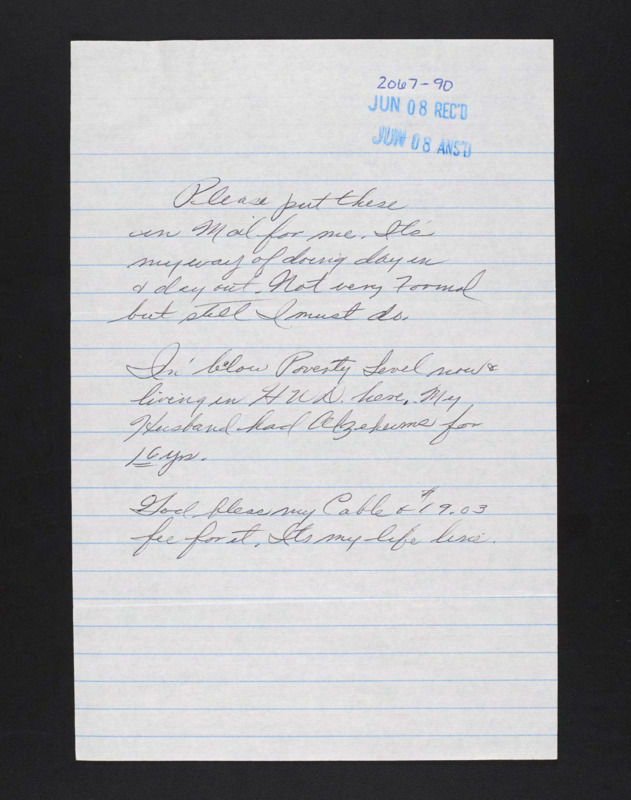 2067-90
JUN 08 REC'D
JUN 08 ANS'D
Please put these
in Mail for me. It's
my way of doing day in
& day out. Not very Formal
but still I must do.
In' below Poverty Level now &
living in HUD. here. My
Husband had Alzeheims for
16 yrs.
God bless my Cable & $19.03
fee for it. Its my life line.